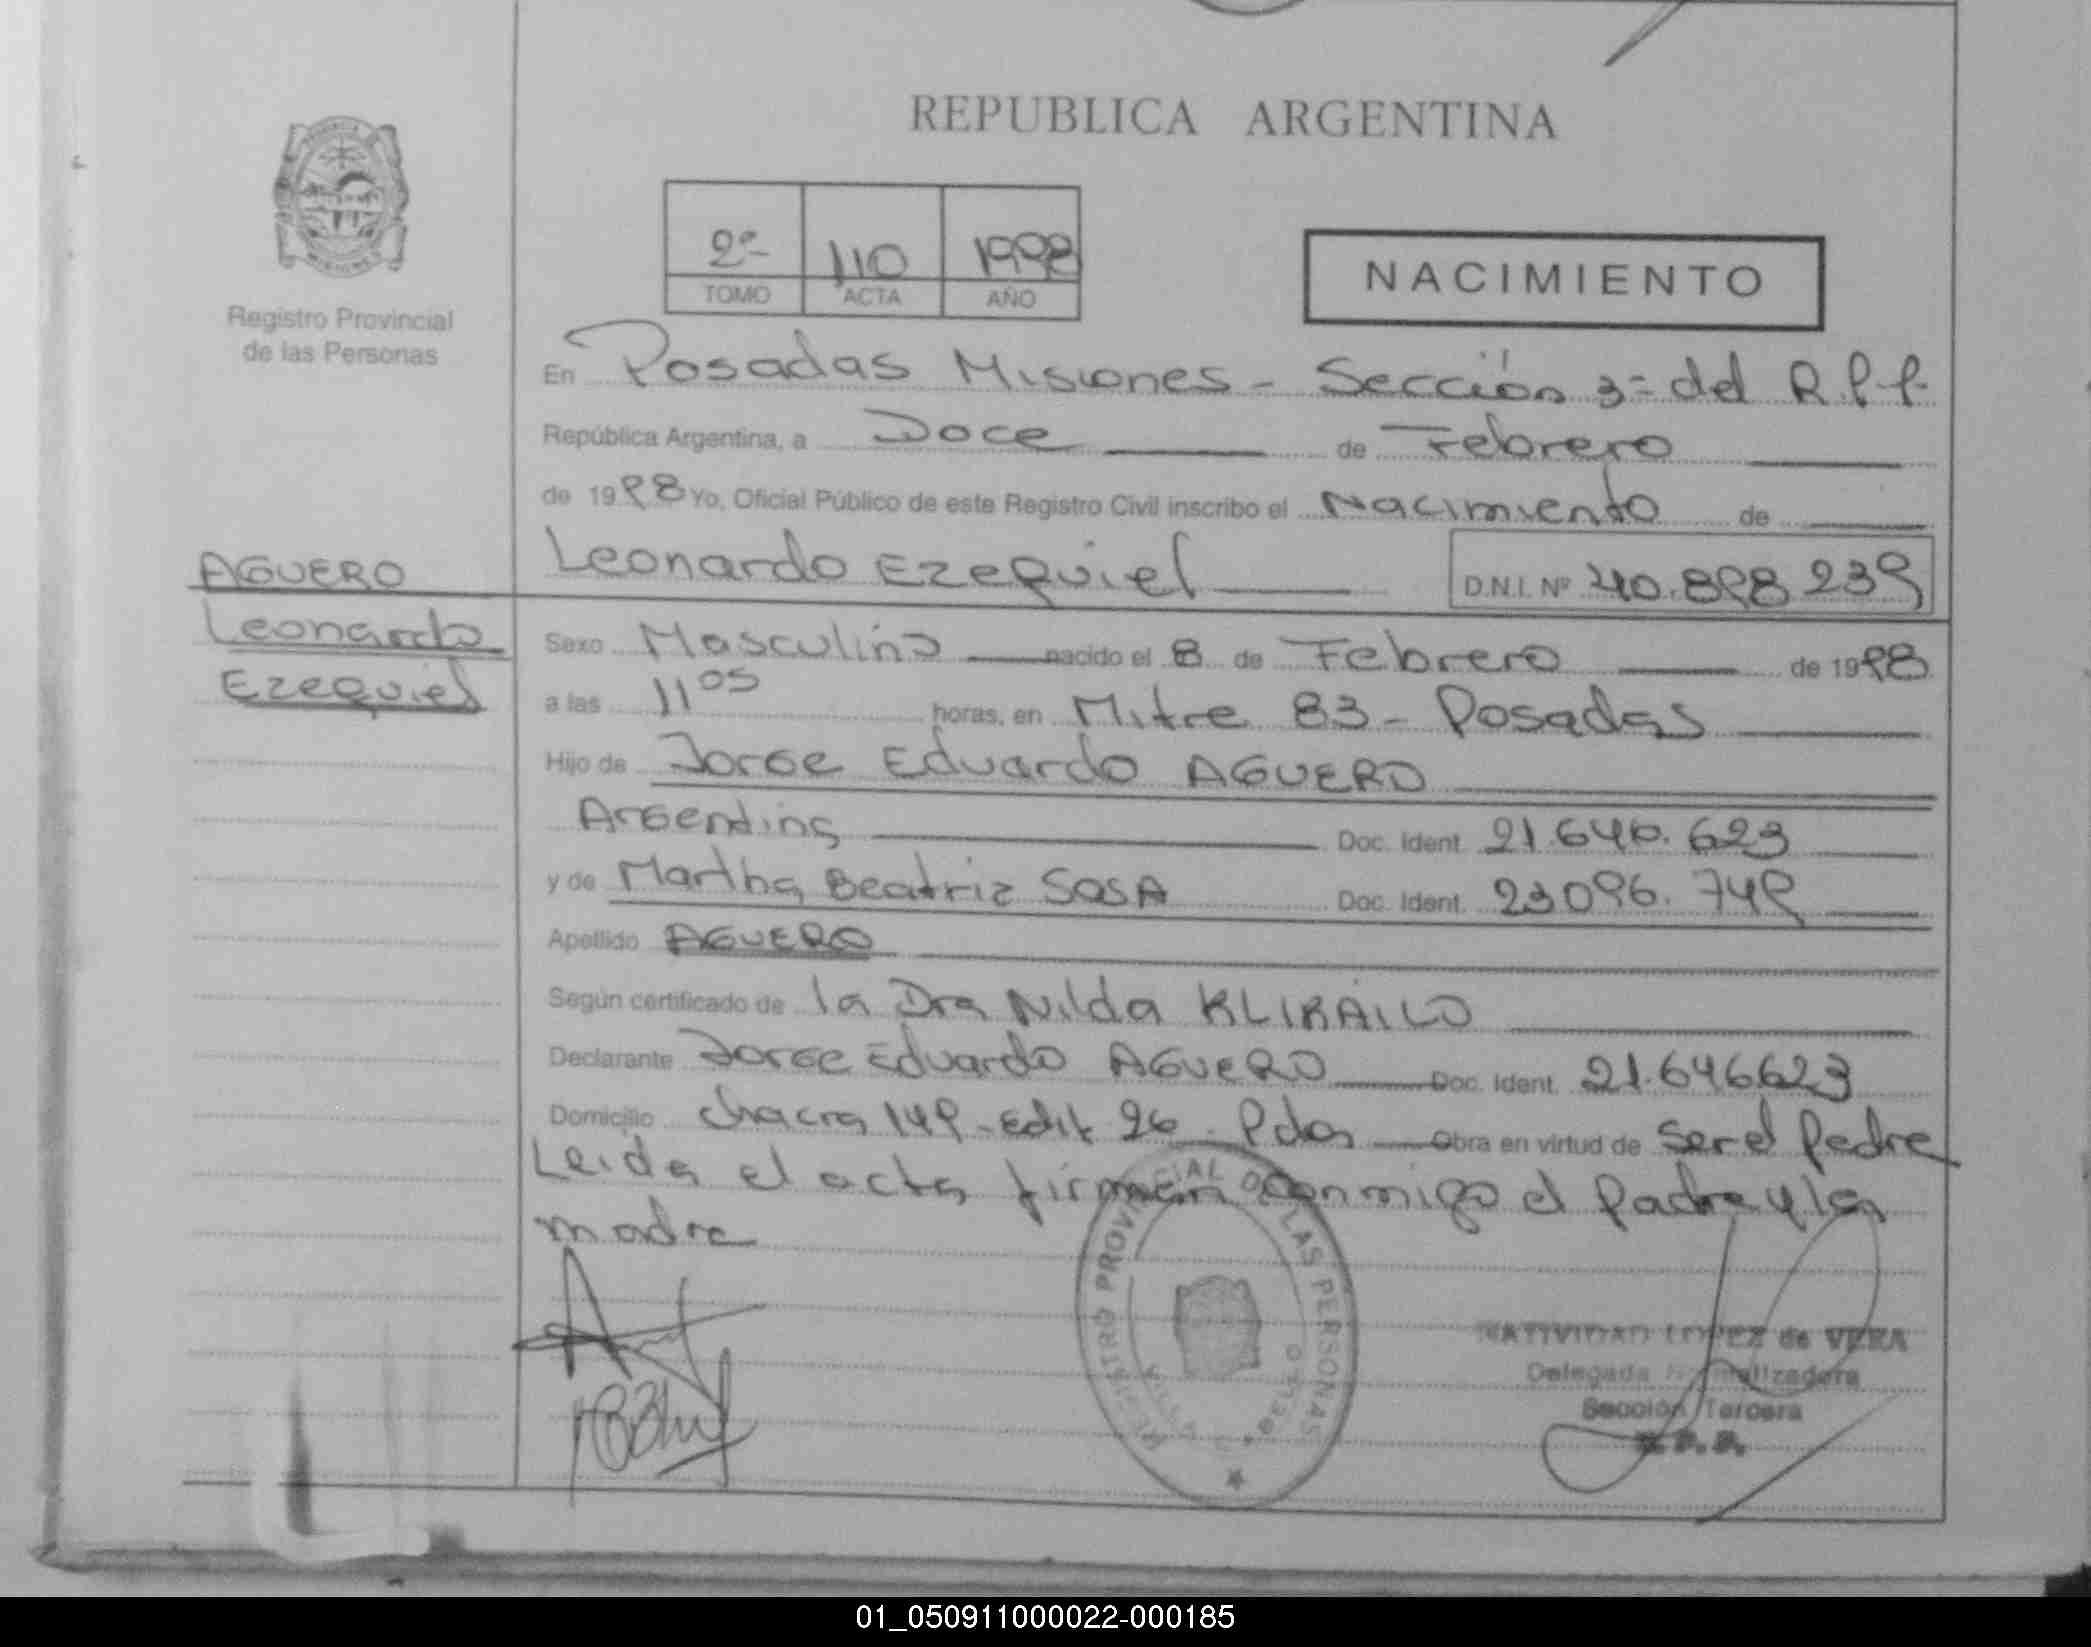 REPUBLICA ARGENTINA
Registro Provincial
de las Personas
2º 110 1998
TOMO ACTA AÑO
NACIMIENTO
En Posadas Misiones - Sección 3ª del R.P.P.
República Argentina, a Doce de Febrero
de 1998 Yo, Oficial Público de este Registro Civil inscribo el Nacimiento de
Leonardo Ezequiel D.N.I. Nº 40.898.239
AGUERO
Leonardo
Ezequiel
Sexo Masculino nacido el 8 de Febrero de 1998
a las 11 05 horas, en Mitre 83 - Posadas
Hijo de Jorge Eduardo AGUERO
Argentina Doc. Ident. 21.646.623
y de Martha Beatriz SOSA Doc. Ident. 23096.749
Apellido AGUERO
Según certificado de la Dra Nilda
Declarante Jorge Eduardo AGUERO Doc. Ident. 21.646623
Domicilio chacra 149 - Edif 26 - Pdas Obra en virtud de ser el Padre
Leida el acta firman conmigo el Padre y la
madre
REGISTRO PROVINCIAL DE LAS PERSONAS
NATIVIDAD LOPEZ de VERA
Delegada Normalizadora
Sección Tercera
R.P.P.
01_050911000022-000185